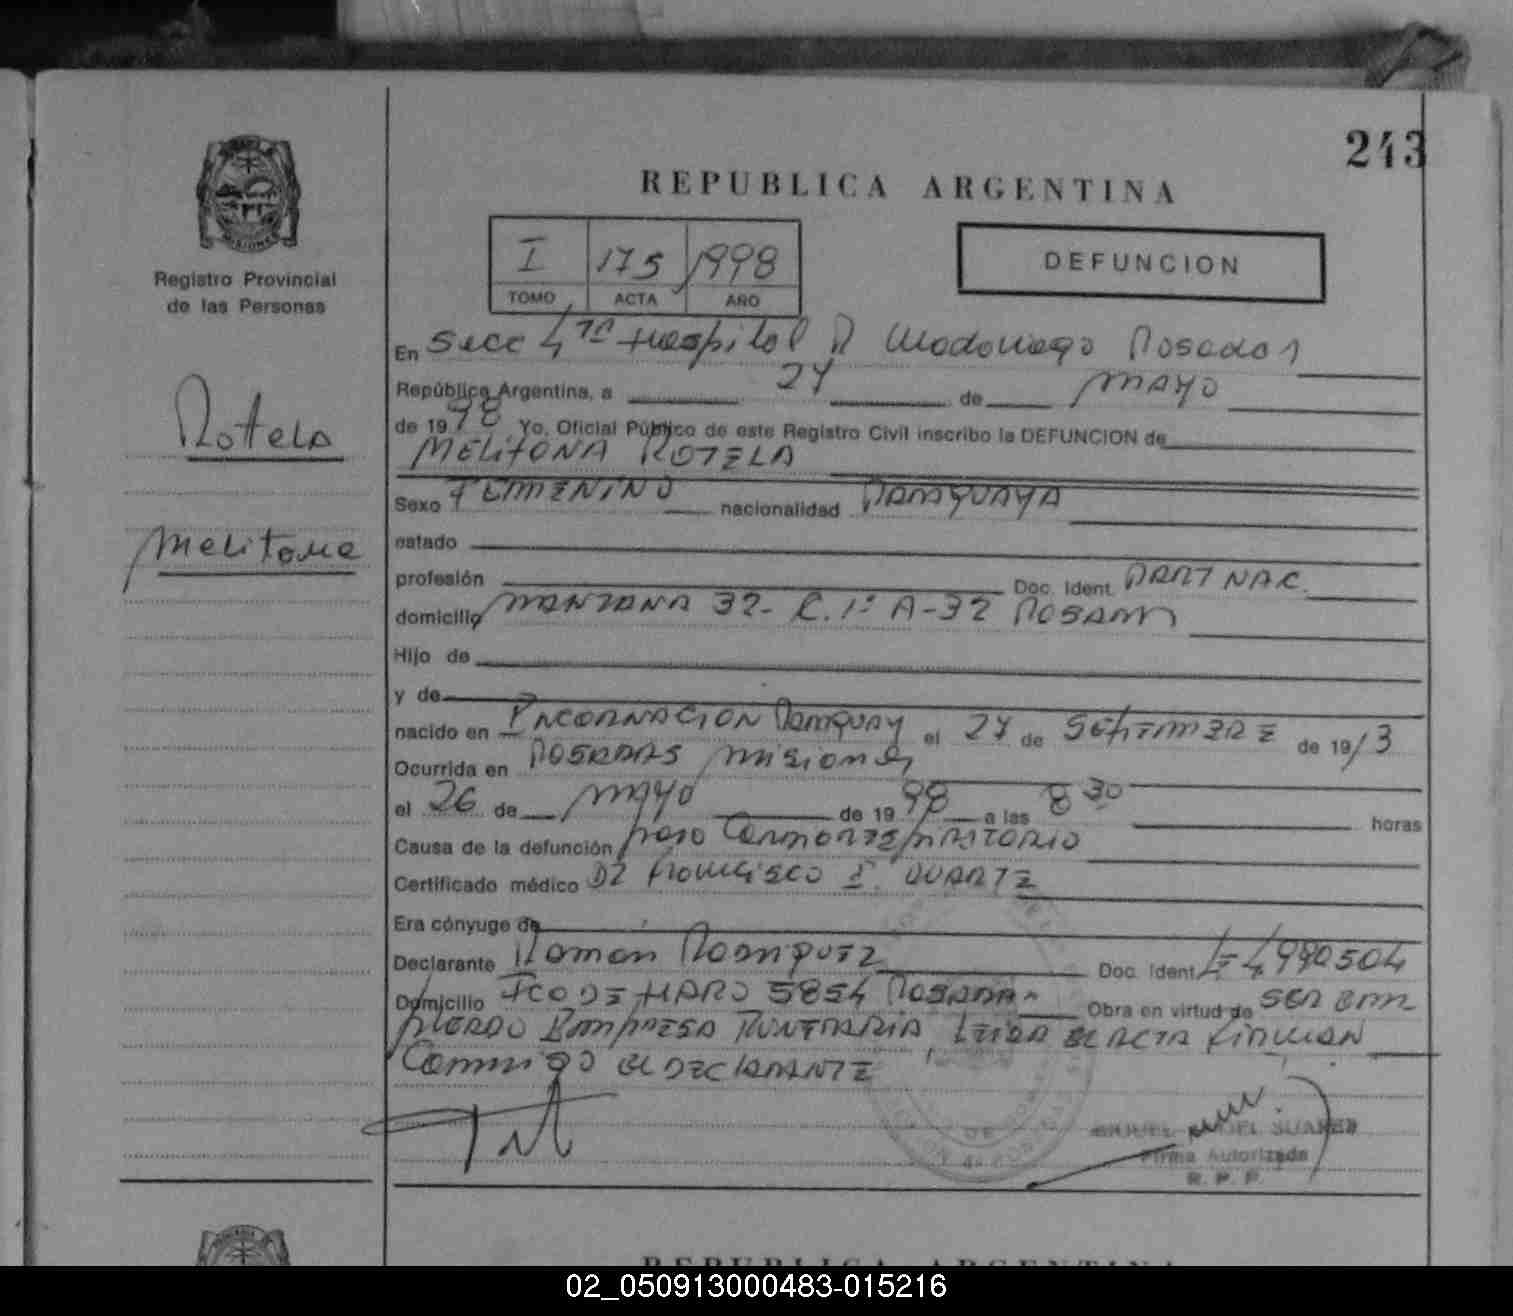 243
REPUBLICA ARGENTINA
MISIONES
Registro Provincial
de las Personas
I 175 1998
TOMO ACTA AÑO
DEFUNCION
En Secc 4ta Hospital R Madariaga Posadas
República Argentina, a 27 de MAYO
de 1998 Yo, Oficial Público de este Registro Civil inscribo la DEFUNCION de
MELITONA ROTELA
Rotela
Melitona
Sexo FEMENINO nacionalidad PARAGUAYA
estado
profesión Doc. Ident. PART NAC.
domicilio MANZANA 32- C. 1: A-32 POSADAS
Hijo de
y de
nacido en ENCARNACION PARAGUAY el 27 de SETIEMBRE de 1913
Ocurrida en POSADAS MISIONES
el 26 de MAYO de 1998 a las 8 30 horas
Causa de la defunción paro CARDIORESPIRATORIO
Certificado médico DR Francisco I. DUARTE
Era cónyuge de
Declarante Román RODRIGUEZ Doc. Ident. LE 4990504
Domicilio FCO DE HARO 5854 POSADAS Obra en virtud de SER EM
PLEADO EMPRESA FUNERARIA, LEIDA EL ACTA FIRMAN
CONMIGO EL DECLARANTE
MIGUEL ANGEL SUAREZ
Firma Autorizada
R. P. P.
REPUBLICA ARGENTINA
02_050913000483-015216